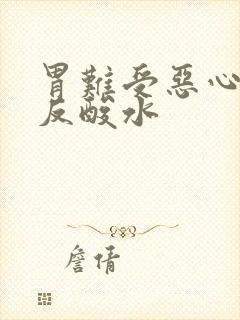 胃難受惡心
反酸水
詹倩